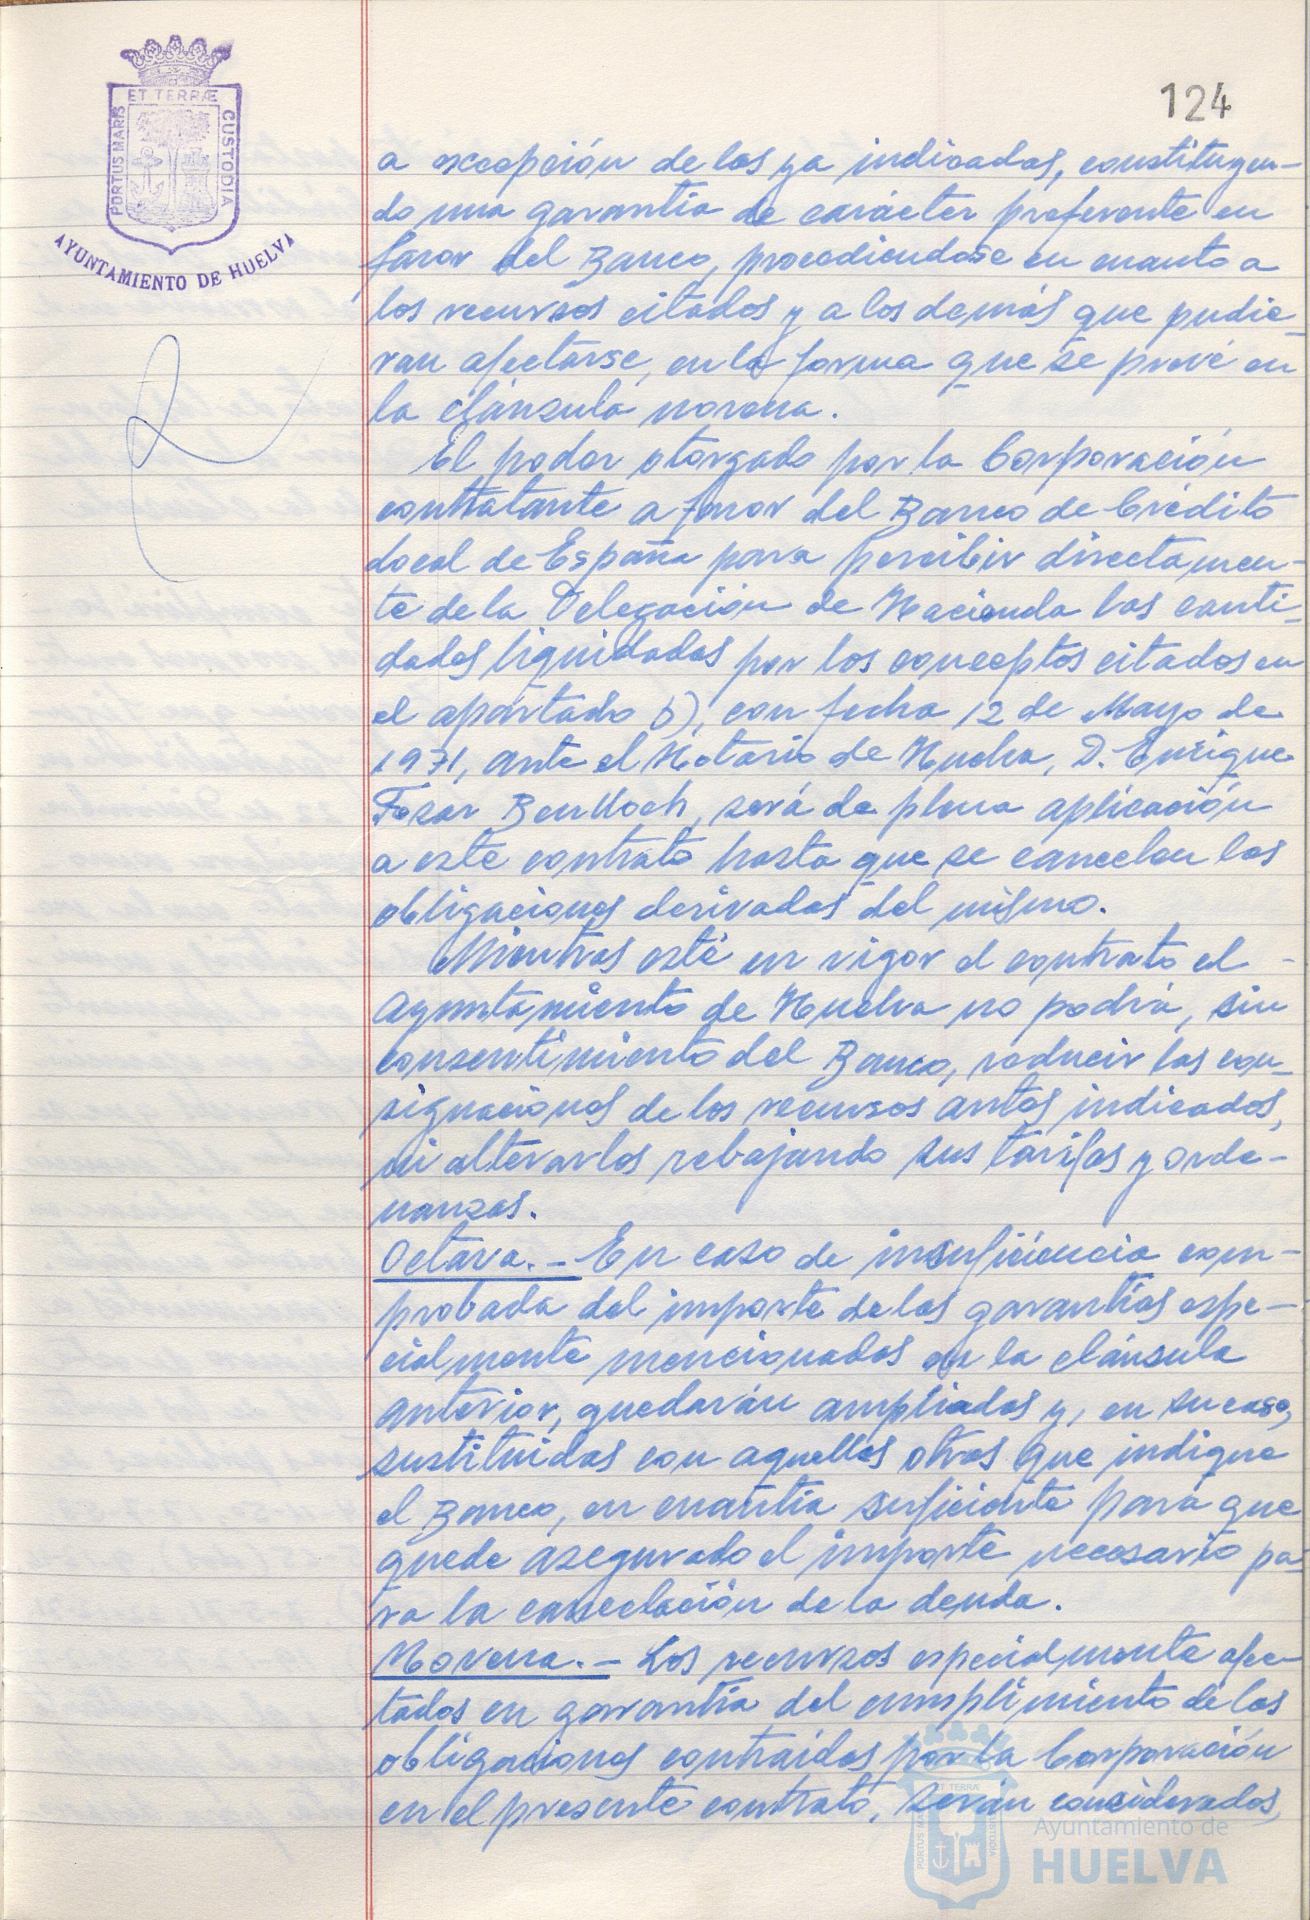 124
ET TERRÆ
PORTUS MARIS
CUSTODIA
AYUNTAMIENTO DE HUELVA
a excepción de las ya indicadas, constituyen-
do una garantía de carácter preferente en
favor del Banco, procediendose en cuanto a
los recursos citados y a los demás que pudie-
ran afectarse, en la forma que se prevé en
la cláusula novena.
El poder otorgado por la Corporación
contratante a favor del Banco de Crédito
Local de España para percibir directamen-
te de la Delegación de Hacienda las canti-
dades liquidadas por los conceptos citados en
el apartado b), con fecha 12 de Mayo de
1971, ante el Notario de Huelva, D. Enrique
Fosar Benlloch, será de plena aplicación
a este contrato hasta que se cancelen las
obligaciones derivadas del mismo.
Mientras esté en vigor el contrato el -
Ayuntamiento de Huelva no podrá, sin
consentimiento del Banco, reducir las con-
signaciones de los recursos antes indicados,
ni alterarlos rebajando sus tarifas y orde-
nanzas.
Octava.- En caso de insuficiencia com-
probada del importe de las garantías espe-
cialmente mencionadas en la cláusula
anterior, quedarán ampliadas y, en su caso,
sustituidas con aquellas otras que indique
el Banco, en cuantía suficiente para que
quede asegurado el importe necesario pa-
ra la cancelación de la deuda.
Novena.- Los recursos especialmente afec-
tados en garantía del cumplimiento de las
obligaciones contraídas por la Corporación
en el presente contrato, serán considerados,
ET TERRÆ
PORTUS MARIS
CUSTODIA
Ayuntamiento de
HUELVA